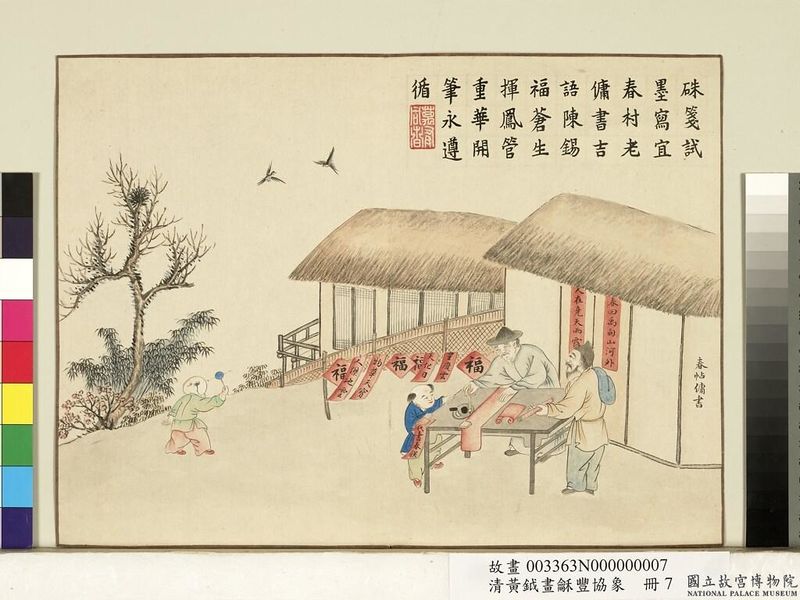 硃箋試
墨寫宜
春村老
傭書吉
語陳錫
福蒼生
揮鳳管
重華開
筆永遵
循
春帖傭書
福
福
福
福
故畫 003363N000000007
清黃鉞畫龢豐協象 冊 7
國立故宮博物院
NATIONAL PALACE MUSEUM